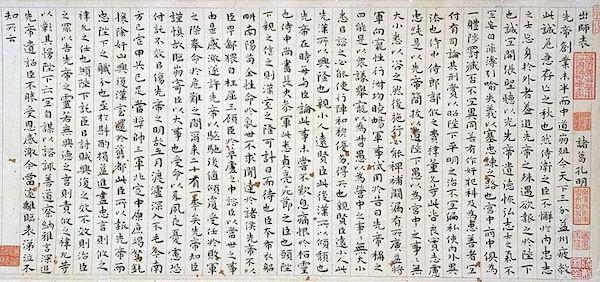 出師表 諸葛孔明
先帝創業未半而中道崩殂今天下三分益州疲敝
此誠危急存亡之秋也然侍衛之臣不懈於內忠志
之士忘身於外者蓋追先帝之殊遇欲報之於陛下
也誠宜開張聖聽以光先帝遺德恢弘志士之氣不
宜妄自菲薄引喻失義以塞忠諫之路也宮中府中俱為
一體陟罰臧否不宜異同若有作奸犯科及為忠善者宜
付有司論其刑賞以昭陛下平明之治不宜偏私使內外異
法也侍中侍郎郭攸之費禕董允等此皆良實志慮
忠純是以先帝簡拔以遺陛下愚以為宮中之事事無
大小悉以咨之然後施行必能裨補闕漏有所廣益將
軍向寵性行淑均曉暢軍事試用於昔日先帝稱之
曰能是以眾議舉寵以為督愚以為營中之事事無大小
悉以咨之必能使行陣和穆優劣得所也親賢臣遠小人此
先漢所以興隆也親小人遠賢臣此後漢所以傾頹也
先帝在時每與臣論此事未嘗不歎息痛恨於桓靈
也侍中尚書長史參軍此悉貞亮死節之臣也願陛
下親之信之則漢室之隆可計日而待也臣本布衣躬
畊南陽苟全性命於亂世不求聞達於諸侯先帝不以
臣卑鄙猥自枉屈三顧臣於草廬之中諮臣以當世之事
由是感激遂許先帝以驅馳後值傾覆受任於敗軍
之際奉命於危難之間爾來二十有一年矣先帝知臣
謹慎故臨崩寄臣以大事也受命以來夙夜憂歎恐
付託不效以傷先帝之明故五月渡瀘深入不毛今南
方已定甲兵已足當獎帥三軍北定中原庶竭駑鈍
攘除奸凶興復漢室還於舊都此臣所以報先帝而
忠陛下之職分也至於斟酌損益進盡忠言則攸之
禕允之任也願陛下託臣以討賊興復之效不效則治臣
之罪以告先帝之靈若無興德之言則責攸之禕允等
咎以彰其慢陛下亦宜自謀以諮諏善道察納雅言深追
先帝遺詔臣不勝受恩感激今當遠離臨表涕泣不
知所云